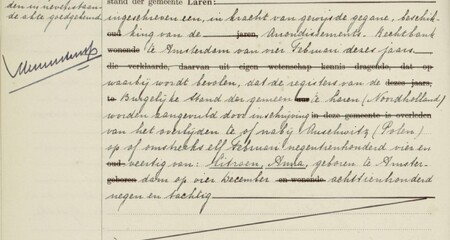 stand der gemeente Laren:
den in nevenstaan-
de akte gedaan
ingeschreven een, in kracht van gewijsde gegane, beschik-
oud king van de jaren, Arrondissements-Rechtbank
wonende te Amsterdam van vier Februari dezes jaars
die verklaarde, daarvan uit eigen wetenschap kennis dragende, dat op
waarbij wordt bevolen, dat de registers van de dezes jaars,
te Burgelijke Stand der gemeen te Laren (Noordholland)
worden aangevuld door inschrijving in deze gemeente is overleden
van het overlijden te of nabij Auschwitz (Polen)
op of omstreeks elf Februari negentienhonderd vier en
oud veertig van: Citroen, Anna, geboren te Amster-
geboren dam op vier December en wonende achttienhonderd
negen en tachtig